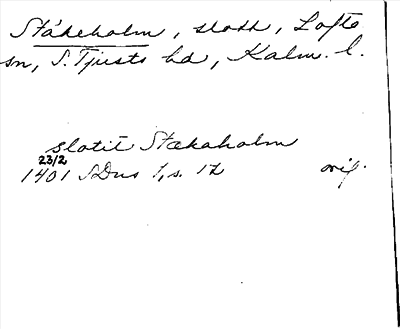 Stäkeholm, slott, Lofta
sn, S. Tjusts hd, Kalm. l.
slotit Stækaholm
23/2
1401 SDns 1, s. 12 orig.